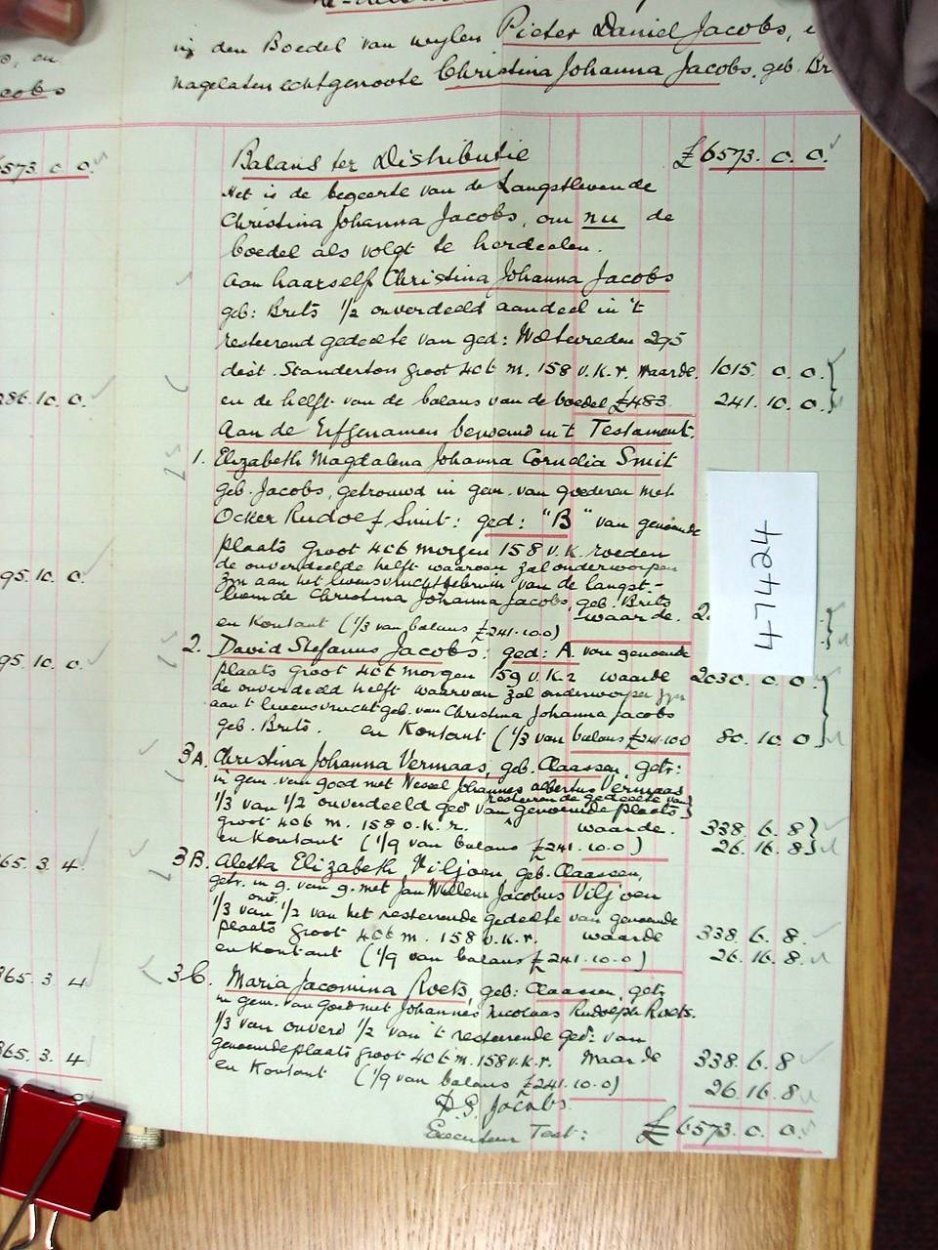 in den Boedel van wylen Pieter Daniel Jacobs, e
nagelaten echtgenoote Christina Johanna Jacobs, geb. Br
en
acobs
6573. 0. 0.
286. 10. 0.
95. 10. 0.
95. 10. 0.
365. 3. 4
365. 3. 4
365. 3. 4
Balans ter Distributie £6573. 0. 0.
Het is de begeerte van de Langstlevende
Christina Johanna Jacobs, om nu de
boedel als volgt te herdeelen.
Aan haarself Christina Johanna Jacobs
geb: Brits 1/2 onverdeeld aandeel in 't
resteerend gedeelte van ged: Weltevreden 295
dist. Standerton groot 406 m. 158 v.k.r. waarde 1015. 0. 0.
en de helft van de balans van de boedel £483 241. 10. 0.
Aan de Erfgenamen benoemd in't Testament.
1. Elizabeth Magdalena Johanna Cornelia Smit
geb. Jacobs, getrouwd in gem. van goederen met
Ocker Rudolf Smit: ged: "B" van genoemde
plaats groot 406 morgen 158 v.k. roeden
de onverdeelde helft waarvan zal onderworpen
zyn aan het levensvruchtgebruik van de langst-
levende Christina Johanna Jacobs, geb. Brits
waarde. 2
en Kontant (1/3 van balans £241.10.0)
47424
2. David Stefanus Jacobs: ged: A van genoemde
plaats groot 406 morgen 159 v.k.r waarde 2030. 0. 0.
de onverdeeld helft waarvan zal onderworpen zyn
aan 't levensvruchtgeb. van Christina Johanna Jacobs
geb. Brits. en Kontant (1/3 van balans £241.10.0 80. 10. 0
3A. Christina Johanna Vermaas, geb. Claassen, getr:
in gem. van goed met Wessel Johannes Albertus Vermaas
resteerende gedeelte van
1/3 van 1/2 onverdeeld ged van genoemde plaats
groot 406 m. 158 v.k.r. waarde. 338. 6. 8
en Kontant (1/9 van balans £241.10.0) 26. 16. 8
3B. Aletta Elizabeth Viljoen, geb. Claassen,
getr. in g. van g. met Jan Willem Jacobus Viljoen
onv.
1/3 van 1/2 van het resteerende gedeelte van genoemde
plaats groot 406 m. 158 v.k.r. waarde 338. 6. 8.
en Kontant (1/9 van balans £241.10.0) 26. 16. 8.
3C. Maria Jacomina Roets, geb: Claassen, getr,
in gem. van goed met Johannes Nicolaas Rudolph Roets.
1/3 van onverd 1/2 van 't resteerende ged: van
genoemde plaats groot 406 m. 158 v.k.r. Waarde 338. 6. 8
en Kontant (1/9 van balans £241.10.0) 26. 16. 8
D.S. Jacobs
Executeur Test: £6573. 0. 0.